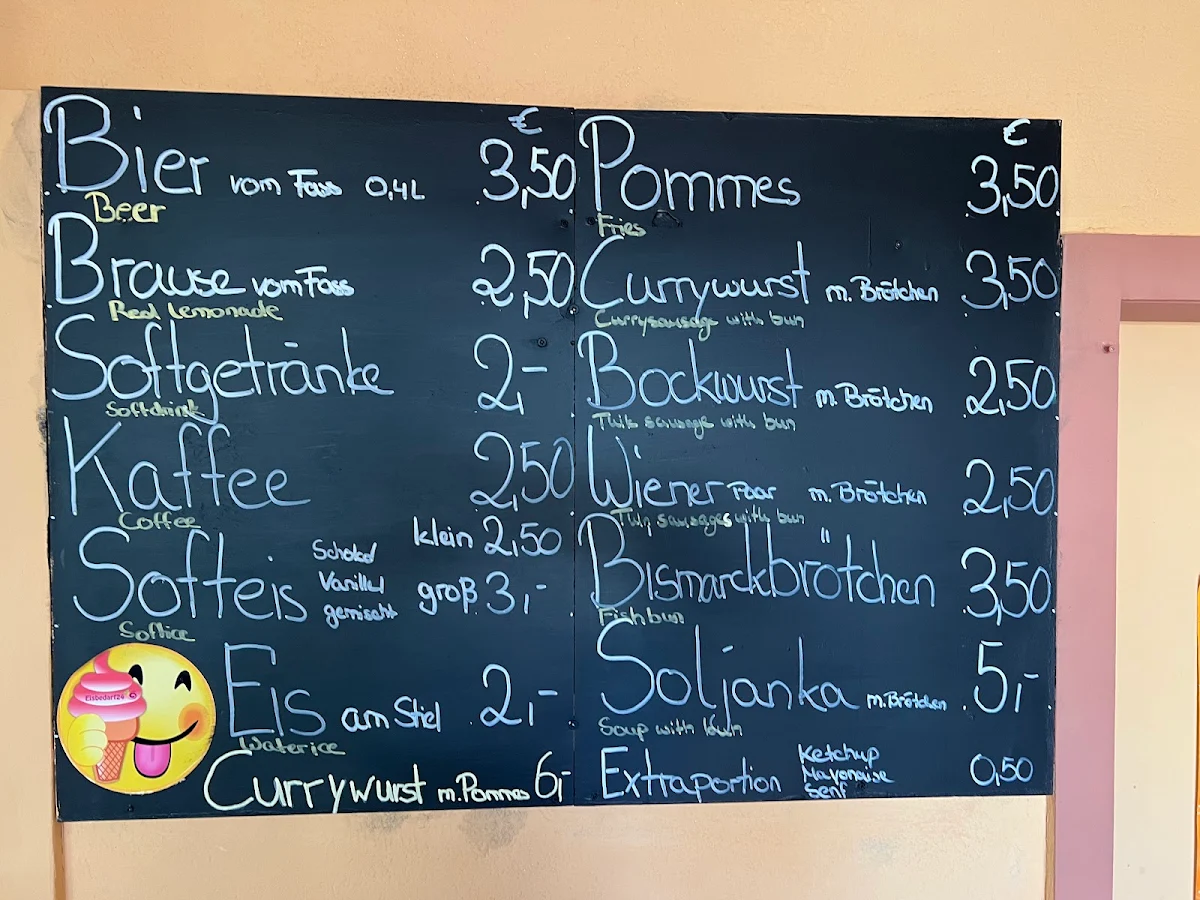 €
Bier vom Fass 0,4L 3,50
Beer
Brause vom Fass 2,50
Real Lemonade
Softgetränke 2,-
Softdrink
Kaffee 2,50
Coffee
Softeis Schoko/ Vanille/ gemischt klein 2,50
groß 3,-
Softice
Eisbedarf24
Eis am Stiel 2,-
Waterice
Currywurst m. Pommes 6,-
€
Pommes 3,50
Fries
Currywurst m. Brötchen 3,50
Currysausage with bun
Bockwurst m. Brötchen 2,50
sausage with bun
Wiener Paar m. Brötchen 2,50
sausages with bun
Bismarckbrötchen 3,50
Fishbun
Soljanka m. Brötchen 5,-
Soup with bun
Extraportion Ketchup Mayonaise Senf 0,50